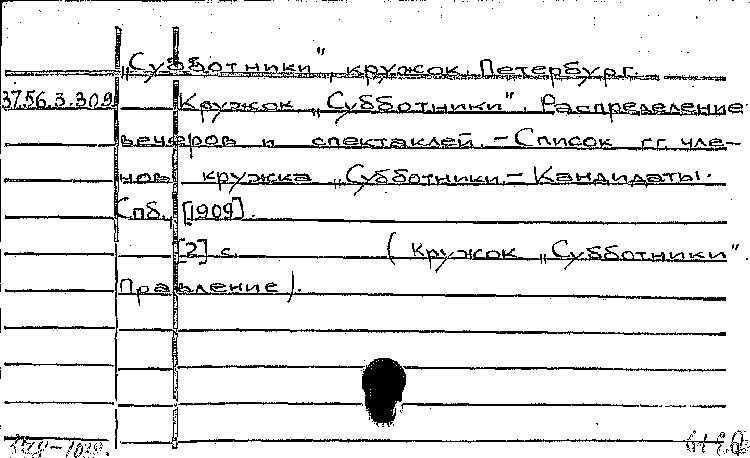 „Субботники", кружок. Петербург.
37.56.3.309 Кружок „Субботники". Распределение
вечеров и спектаклей. – Список гг. чле-
нов кружка „Субботники. – Кандидаты.
Спб., [1909].
[2] с. (Кружок „Субботники".
Правление).